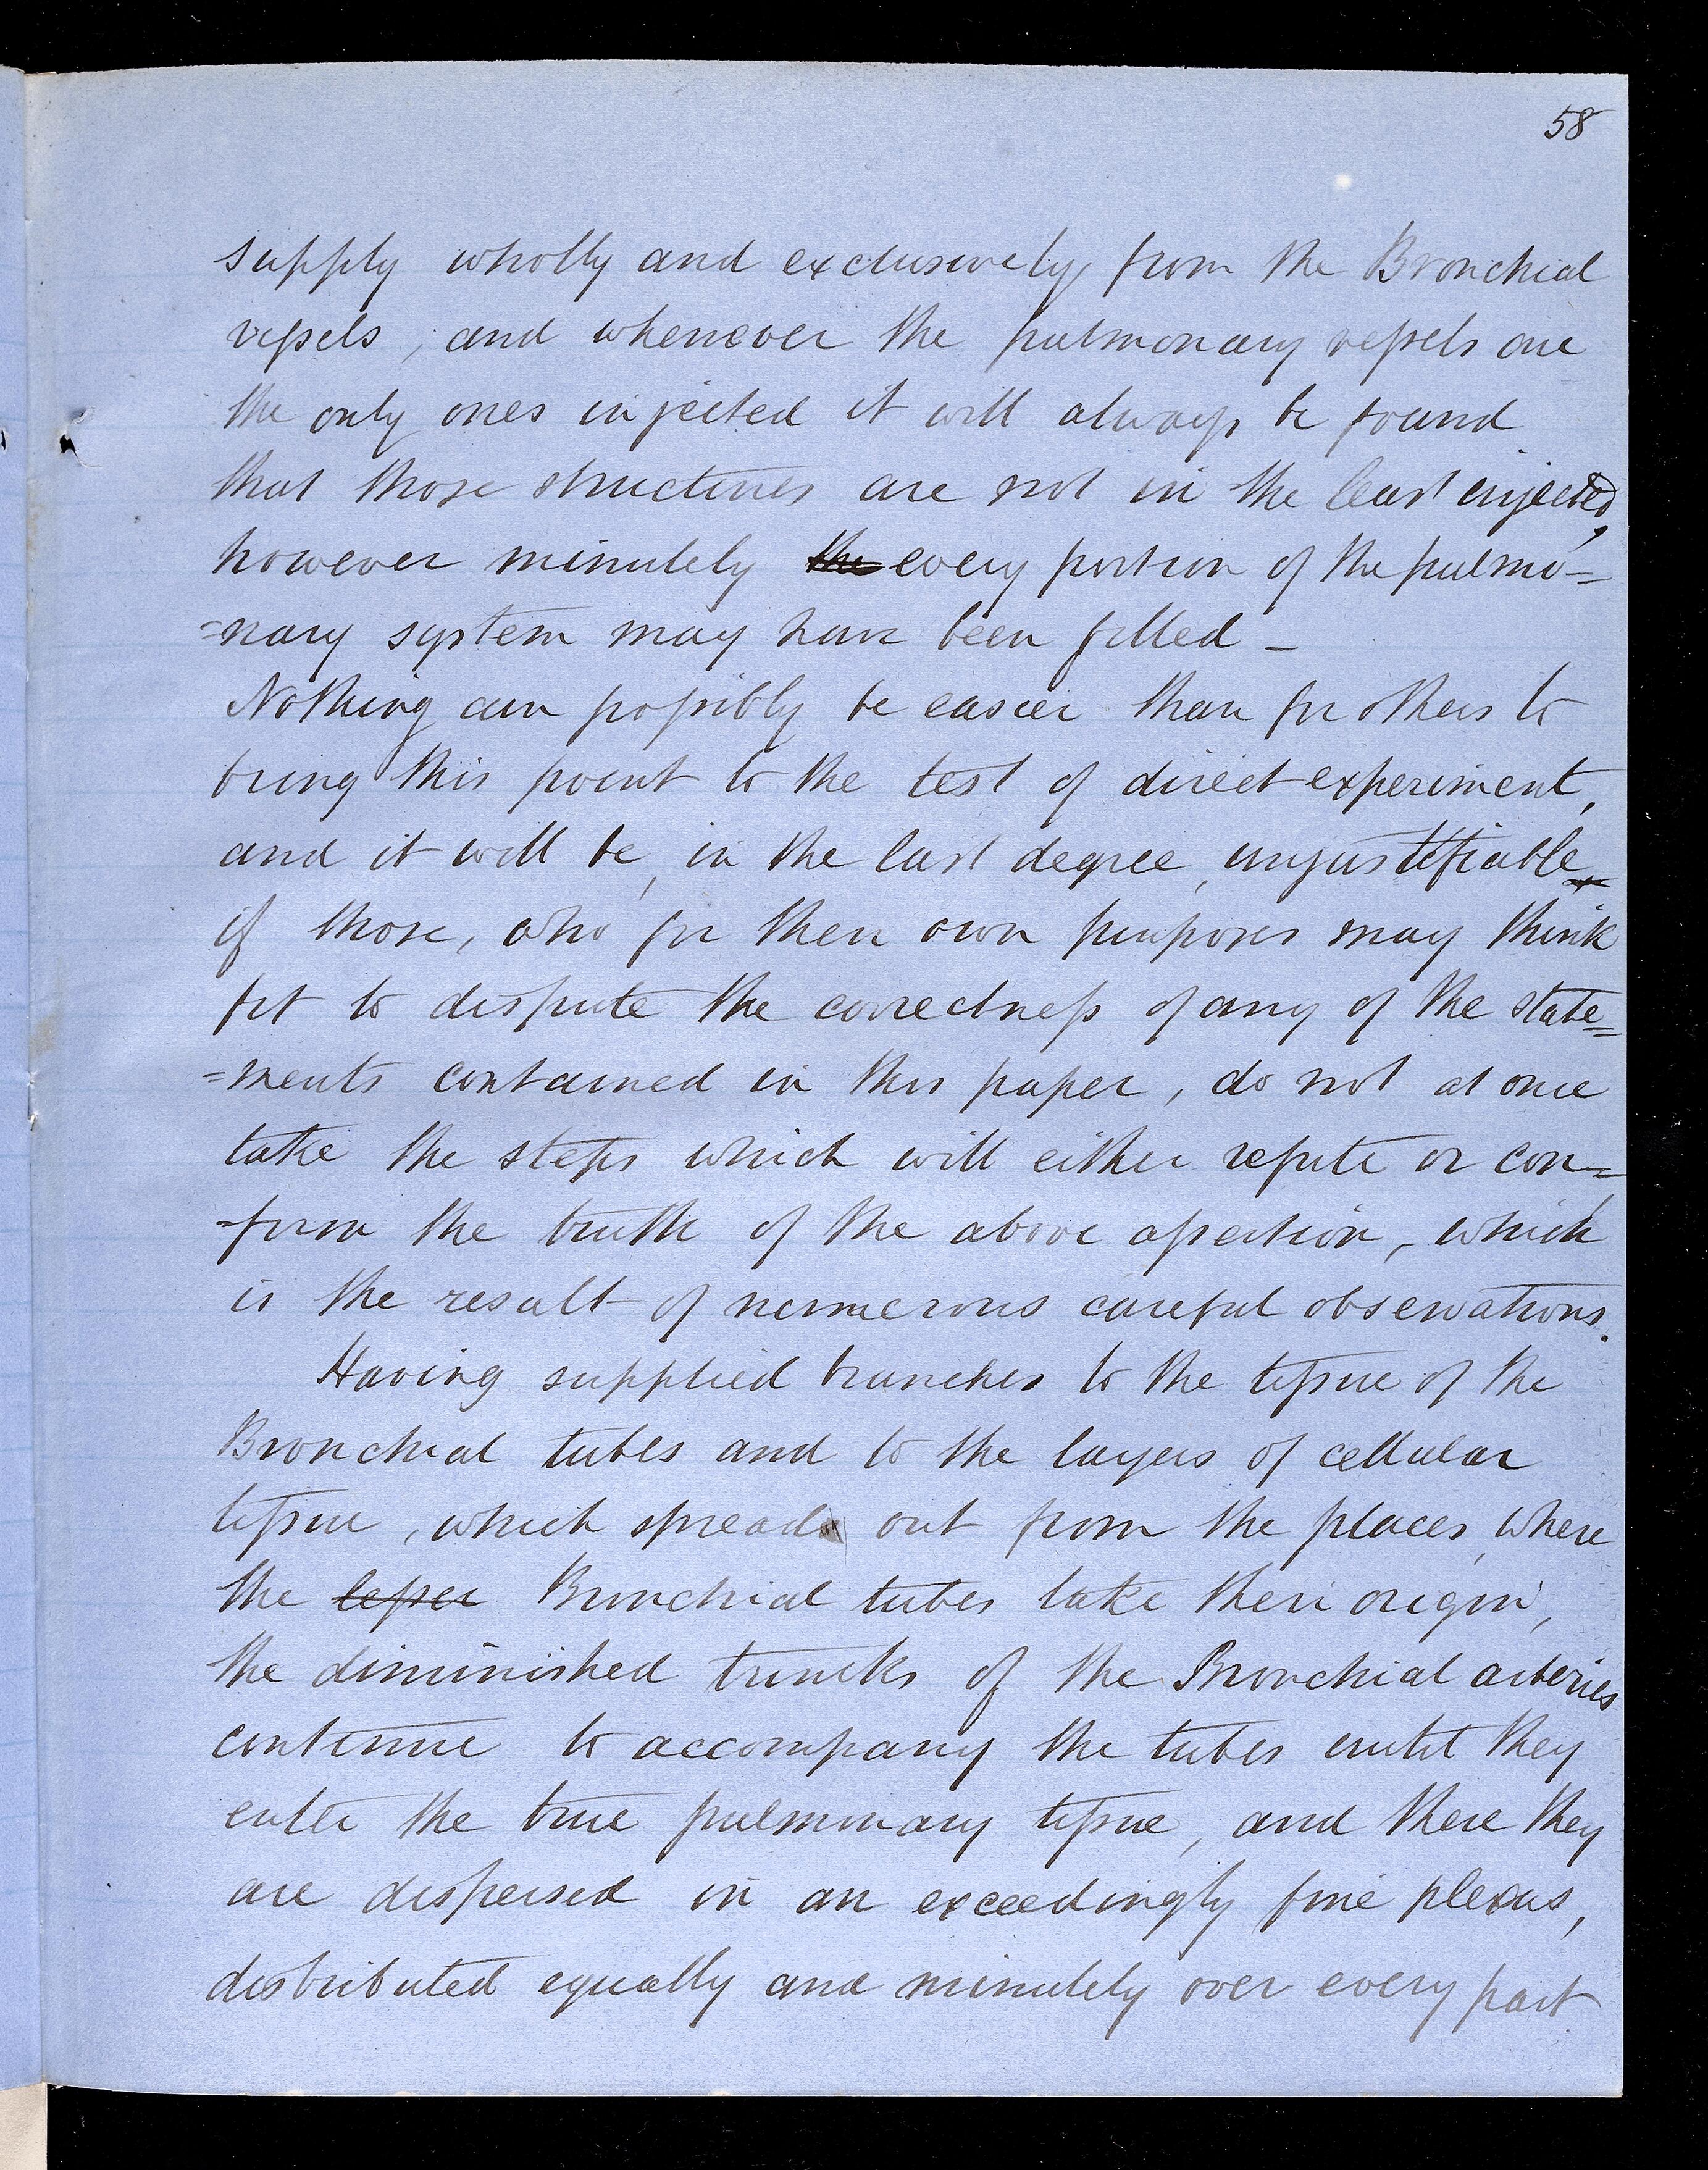 58
supply wholly and exclusively from the Bronchial
vessels, and whenever the pulmonary vessels are
the only ones injected it will always be found
that those structures are not in the least injected,
however minutely the every portion of the pulmo=
=nary system may have been filled _
Nothing can possibly be easier than for others to
bring this point to the test of direct experiment,
and it will be, in the last degree, unjustifiable
if those, who for their own purposes may think
fit to dispute the correctness of any of the state=
=ments contained in this paper, do not at once
take the steps which will either refute or con=
=firm the truth of the above assertion, which
is the result of numerous careful observations.
Having supplied branches to the tissue of the
Bronchial tubes and to the layers of cellular
tissue, which spreads out from the places, where
the lesser Bronchial tubes take their origin,
the diminished trunks of the Bronchial arteries
continue to accompany the tubes until they
enter the true pulmonary tissue, and there they
are dispersed in an exceedingly fine plexus,
distributed equally and minutely over every part